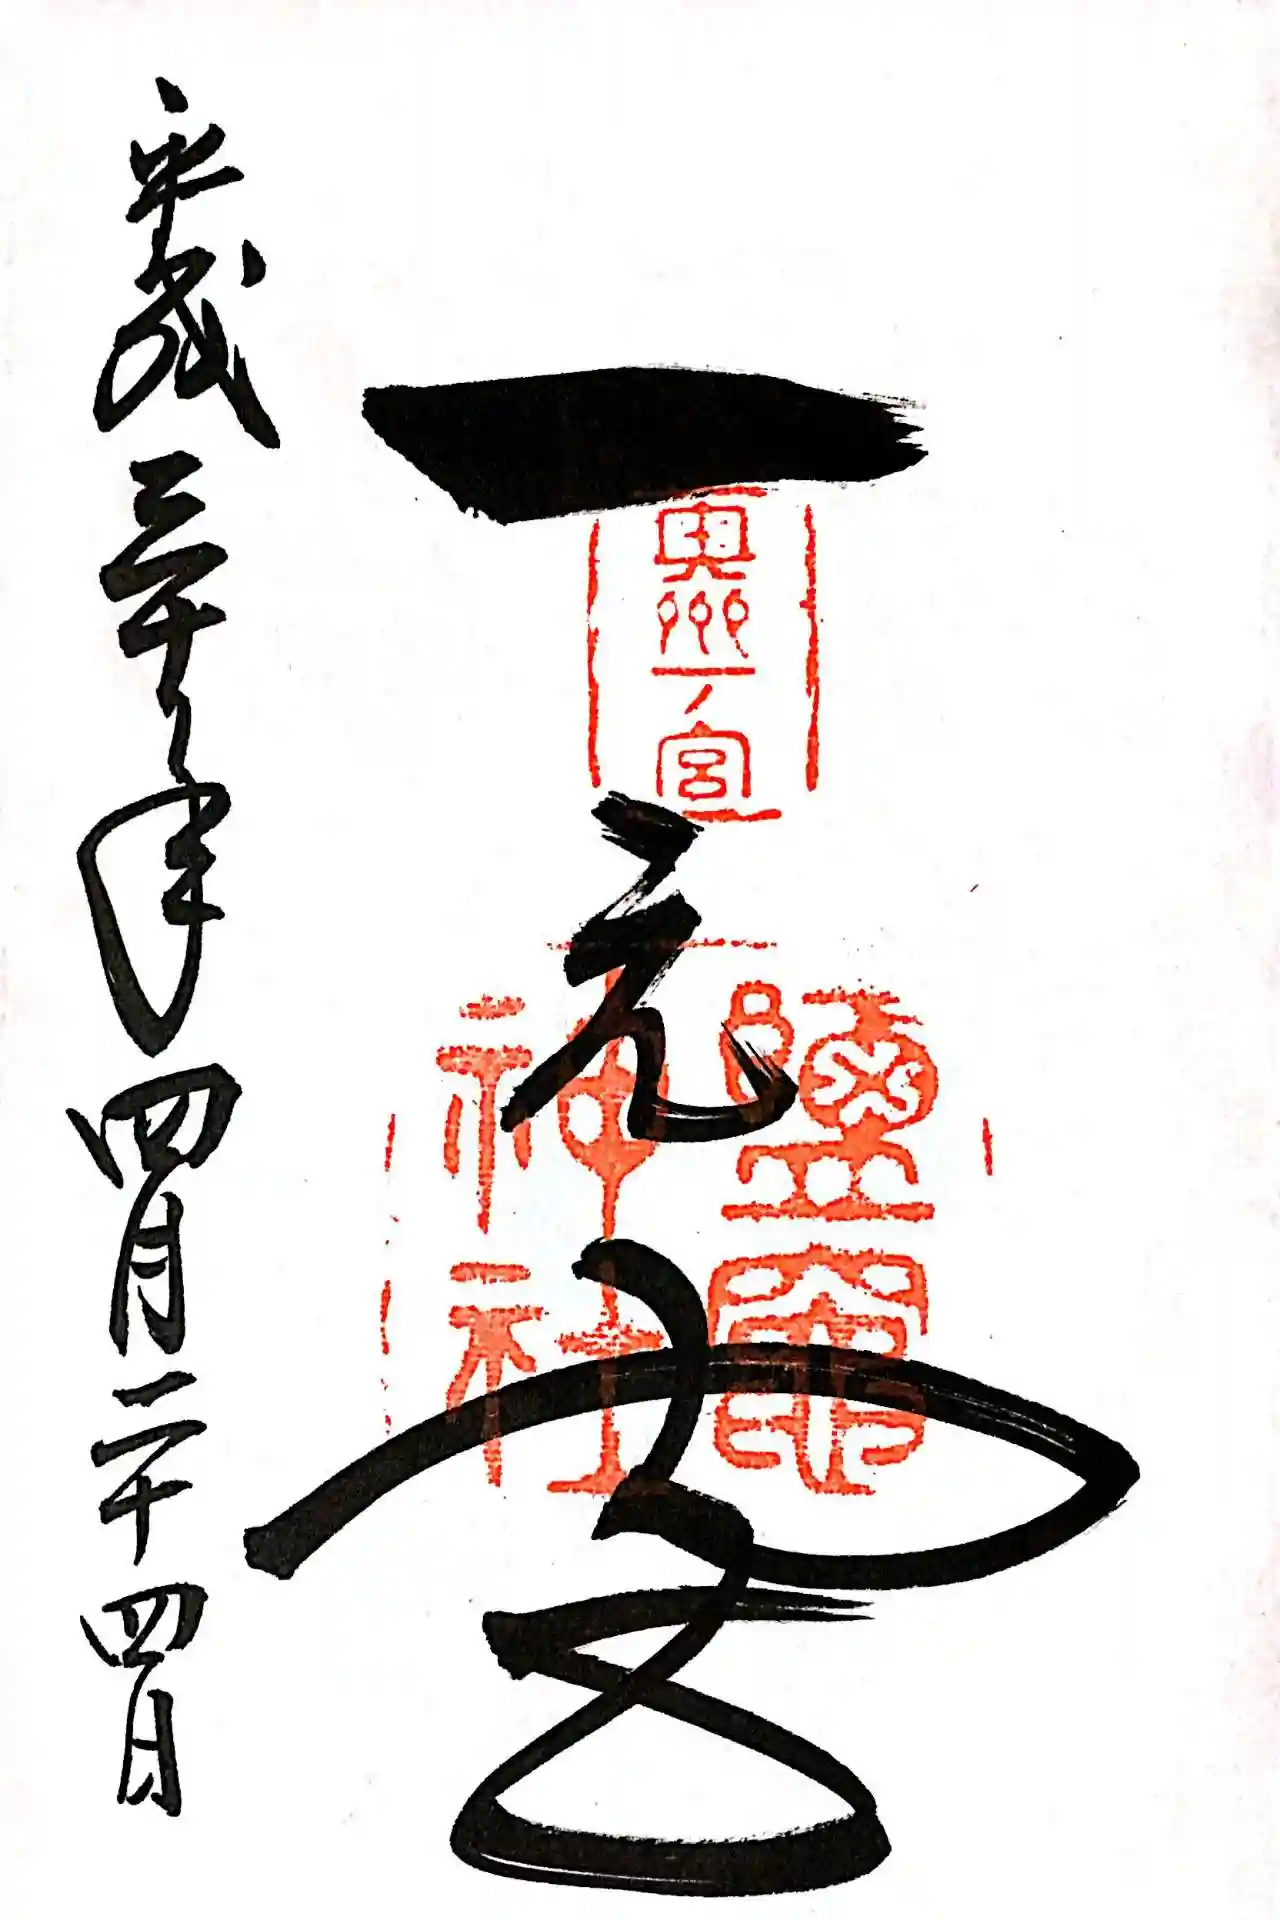 奥州一ノ宮
鹽竈
神社
一之宮
平成三十年四月二十四日